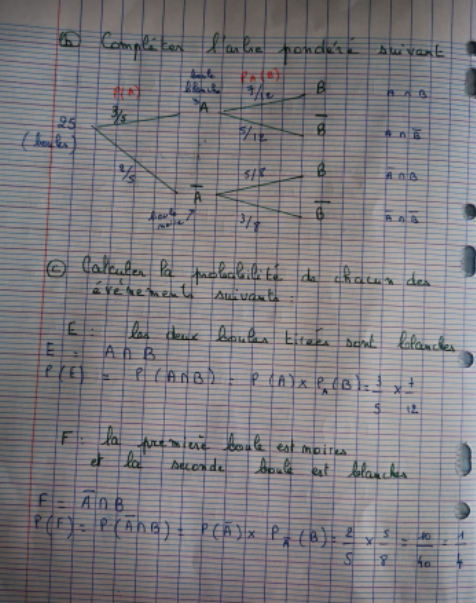 b) Compléter l'arbre pondéré suivant
P(A) boule blanche P_A(B)
3/5 A 7/12 B A ∩ B
25 (boules)
5/12 B̄ A ∩ B̄
2/5 5/8 B Ā ∩ B
Ā
boule noire 3/8 B̄ Ā ∩ B̄
c) Calculer la probabilité de chacun des
événements suivants :
E : les deux boules tirées sont blanches
E = A ∩ B
P(E) = P(A∩B) = P(A) × P_A(B) = 3/5 × 7/12
F : la première boule est noires
et la seconde boule est blanches
F = Ā ∩ B
P(F) = P(Ā∩B) = P(Ā) × P_Ā(B) = 2/5 × 5/8 = 10/40 = 1/4